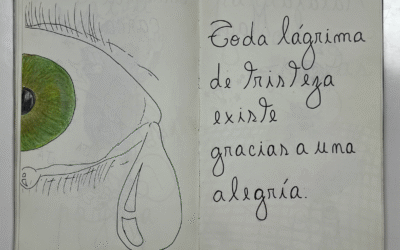 Toda lágrima
de tristeza
existe
gracias a una
alegría.